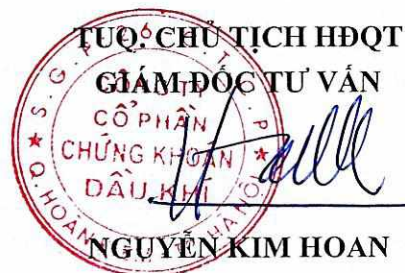 TUQ. CHỦ TỊCH HĐQT
GIÁM ĐỐC TƯ VẤN
CỔ PHẦN
CHỨNG KHOÁN
DẦU KHÍ
NGUYỄN KIM HOAN